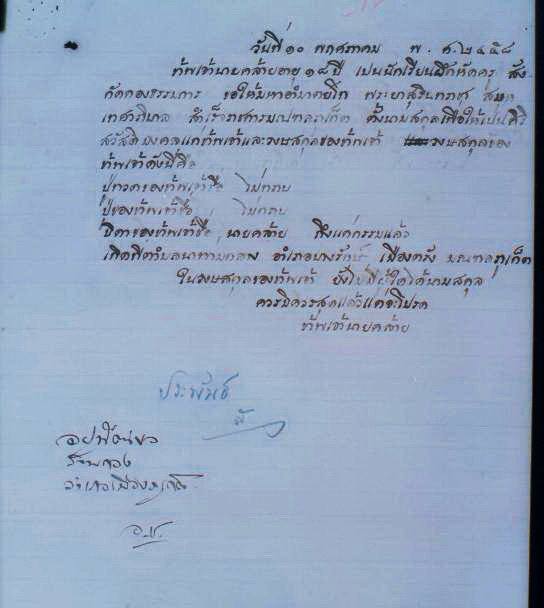 วันที่ ๑๐ พฤศภาคม พ.ศ. ๒๔๕๘
ข้าพเจ้านายคล้ายอายุ ๑๘ ปี เปนนักเรียนฝึกหัดครู สัง
กัดกองธรรมการ ขอให้มหาอำมาตย์โท พระยาสุรินทราชา สมุห
เทศาภิบาล สำเร็จราชการมณฑลภูเก็ต ตั้งนามสกุลเพื่อให้เปนศิริ
สวัสดิมงคลแก่ข้าพเจ้าและวงษสกุลของข้าพเจ้า วงษสกุลของ
ข้าพเจ้าดังนี้คือ
ปู่ทวดของข้าพเจ้าชื่อ ไม่ทราบ
ปู่ของข้าพเจ้าชื่อ ไม่ทราบ
บิดาของข้าพเจ้าชื่อ นายคล้าย ถึงแก่กรรมแล้ว
เกิดที่ตำบล อำเภอ เมืองตรัง มณฑลภูเก็ต
ในวงษสกุลของข้าพเจ้า ยังไม่มีผู้ใดได้นามสกุล
ควรมิควรสุดแล้วแต่จะโปรด
ข้าพเจ้านายคล้าย
ประพันธ์